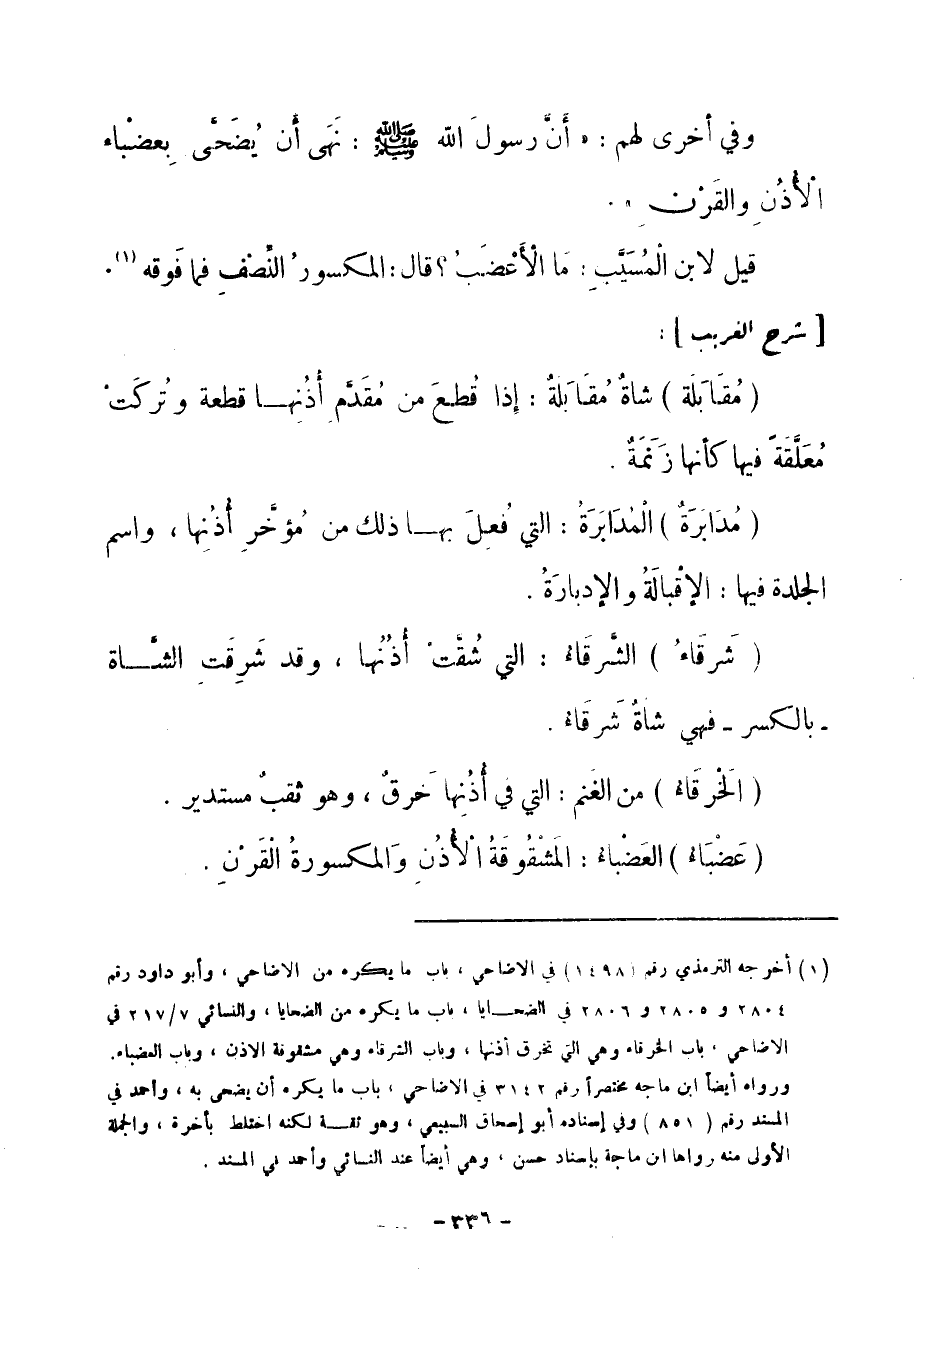 وفي أخرى لهم : « أَنَّ رسولَ الله ﷺ : نَهَى أَن يُضَحَّى بِعضْباء
الْأُذُنِ والقَرْنِ » .
قيل لابن الْمُسَيَّبِ : مَا الْأَعْضَبُ ؟ قال : المكسورُ النِّصْفِ فما فَوقه (١) .
[ شرح الغريب ] :
( مُقَابَلَة ) شاةٌ مُقَابَلَةٌ : إِذا قُطعَ من مُقَدَّمِ أُذُنِهـا قطعة وتُركَتْ
مُعَلَّقَةً فيها كأنها زَنَمَةٌ .
( مُدَابَرَةٌ ) الْمُدَابَرَةُ : التي فُعِلَ بهـا ذلك من مُؤخَّرِ أُذُنِها ، واسم
الجلدة فيها : الإِقْبالَةُ والإِدبارَةُ .
( شَرقَاءُ ) الشَّرقَاءُ : التي شُقَّتْ أُذُنُها ، وقد شَرِقَتِ الشَّـاة
ـ بالكسر ـ فهي شاةٌ شَرقَاءُ .
( الَخْرقَاءُ ) من الغَنم : التي في أُذُنِها خَرقٌ ، وهو ثقبٌ مستدير .
( عَضْبَاءُ ) العَضْباءُ : المَشْقُوقَةُ الْأُذُنِ وَالمكسورةُ الْقَرْنِ .
(١) أخرجه الترمذي رقم (١٤٩٨) في الاضاحي ، باب ما يكره من الاضاحي ، وأبو داود رقم
٢٨٠٤ و ٢٨٠٥ و ٢٨٠٦ في الضحـايا ، باب ما يكره من الضحايا ، والنسائي ٢١٧/٧ في
الاضاحي ، باب الخرقاء وهي التي تخرق أذنها ، وباب الشرقاء وهي مشقوقة الاذن ، وباب العضباء.
ورواه أيضاً ابن ماجه مختصراً رقم ٣١٤٢ في الاضاحي ، باب ما يكره أن يضحى به ، وأحمد في
المسند رقم ( ٨٥١ ) وفي إسناده أبو إسحاق السبيعي ، وهو ثقـة لكنه اختلط بأخرة ، والجملة
الأولى منه رواها ابن ماجة بإسناد حسن ، وهي أيضاً عند النسائي وأحمد في المسند .
- ٣٣٦ -